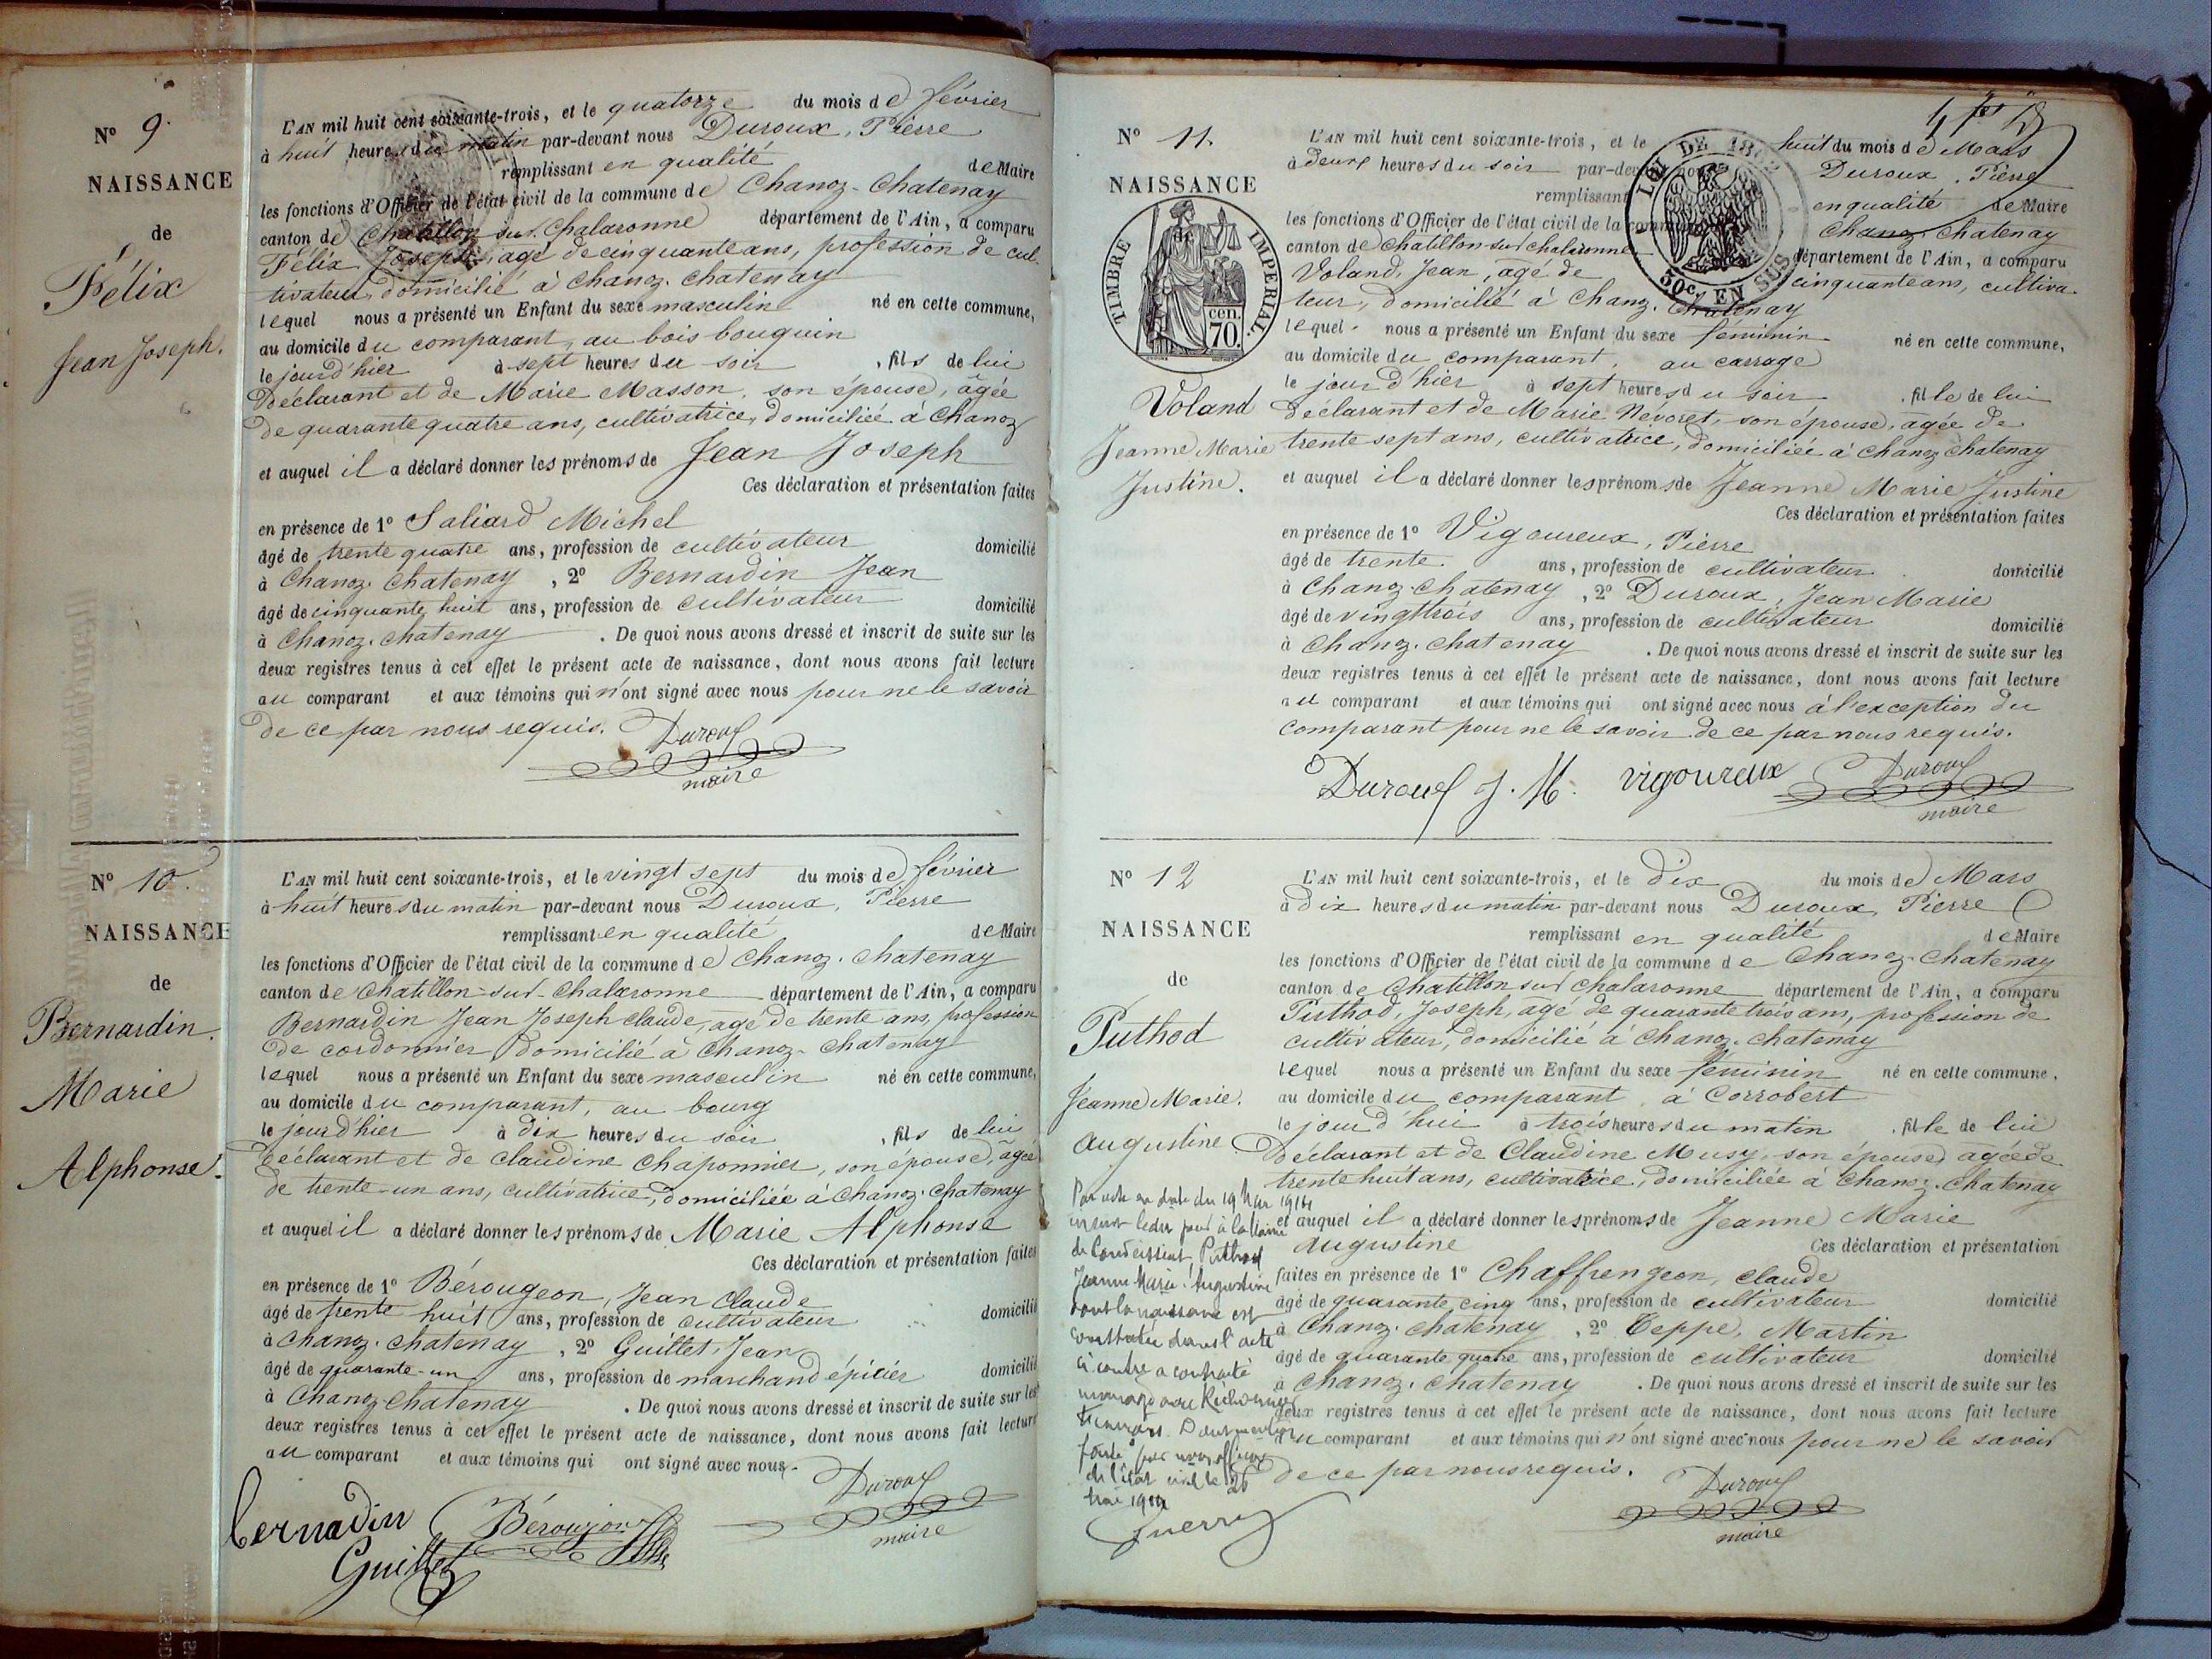 N° 9.
NAISSANCE
de
Félix
Jean Joseph.
L'AN mil huit cent soixante-trois, et le quatorze du mois de février
à huit heures du matin par-devant nous Duroux, Pierre
remplissant en qualité de Maire
les fonctions d'Officier de l'état civil de la commune de Chanoz-Chatenay
canton de Chatillon sur Chalaronne département de l'Ain, a comparu
Félix Joseph, agé de cinquante ans, profession de cul-
tivateur, domicilié à Chanoz-Chatenay
lequel nous a présenté un Enfant du sexe masculin né en cette commune,
au domicile du comparant, au bois bouquin
le jourd'hier à sept heures du soir, fils de lui
Déclarant et de Marie Masson, son épouse, âgée
de quarante quatre ans, cultivatrice, domiciliée à Chanoz
et auquel il a déclaré donner les prénoms de Jean Joseph
Ces déclaration et présentation faites
en présence de 1° Saliard Michel
âgé de trente quatre ans, profession de cultivateur domicilié
à Chanoz-Chatenay, 2° Bernardin Jean
âgé de cinquante huit ans, profession de cultivateur domicilié
à Chanoz-chatenay. De quoi nous avons dressé et inscrit de suite sur les
deux registres tenus à cet effet le présent acte de naissance, dont nous avons fait lecture
au comparant et aux témoins qui n'ont signé avec nous pour ne le savoir
de ce par nous requis. Duroux
maire
N° 10.
NAISSANCE
de
Bernardin.
Marie
Alphonse.
L'AN mil huit cent soixante-trois, et le vingt sept du mois de février
à huit heures du matin par-devant nous Duroux, Pierre
remplissant en qualité de Maire
les fonctions d'Officier de l'état civil de la commune de Chanoz-Chatenay
canton de Chatillon-sur-Chalaronne département de l'Ain, a comparu
Bernardin Jean Joseph claude, agé de trente ans, profession
de cordonnier, domicilié à Chanoz-Chatenay
lequel nous a présenté un Enfant du sexe masculin né en cette commune,
au domicile du comparant, au bourg
le jourd'hier à dix heures du soir, fils de lui
Déclarant et de Claudine Chaponnier, son épouse, âgée
de trente-un ans, cultivatrice, domiciliée à Chanoz-Chatenay
et auquel il a déclaré donner les prénoms de Marie Alphonse
Ces déclaration et présentation faites
en présence de 1° Bérougeon, Jean Claude
âgé de trente huit ans, profession de cultivateur domicilié
à Chanoz-chatenay, 2° Guillet, Jean
âgé de quarante-un ans, profession de marchand épicier domicilié
à Chanoz-Chatenay. De quoi nous avons dressé et inscrit de suite sur les
deux registres tenus à cet effet le présent acte de naissance, dont nous avons fait lecture
au comparant et aux témoins qui ont signé avec nous.
bernadin Béroujon Duroux
Guillet maire
N° 11.
NAISSANCE
TIMBRE IMPERIAL.
cen. 70.
Voland
Jeanne Marie
Justine.
LOI DE 1862
30c. EN SUS
L'AN mil huit cent soixante-trois, et le huit du mois de Mars
à deux heures du soir par-devant nous Duroux, Pierre
remplissant en qualité de Maire
les fonctions d'Officier de l'état civil de la commune Chanoz Chatenay
canton de Chatillon-sur chalaronne département de l'Ain, a comparu
Voland, Jean, agé de cinquante ans, cultiva-
teur, domicilié à Chanoz-Chatenay
lequel nous a présenté un Enfant du sexe féminin né en cette commune,
au domicile du comparant, au carrage
le jour d'hier à sept heures du soir, fille de lui
Déclarant et de Marie Névoret, son épouse, agée de
trente sept ans, cultivatrice, domiciliée à Chanoz Chatenay
et auquel il a déclaré donner les prénoms de Jeanne Marie Justine
Ces déclaration et présentation faites
en présence de 1° Vigoureux, Pierre
âgé de trente ans, profession de cultivateur domicilié
à Chanoz-Chatenay, 2° Duroux, Jean Marie
âgé de vingt trois ans, profession de cultivateur domicilié
à Chanoz-chatenay. De quoi nous avons dressé et inscrit de suite sur les
deux registres tenus à cet effet le présent acte de naissance, dont nous avons fait lecture
au comparant et aux témoins qui ont signé avec nous à l'exception du
comparant pour ne le savoir de ce par nous requis.
Duroux J. M. vigoureux Duroux
maire
N° 12
NAISSANCE
de
Puthod
Jeanne Marie.
Augustine
L'AN mil huit cent soixante-trois, et le dix du mois de Mars
à dix heures du matin par-devant nous Duroux, Pierre
remplissant en qualité de Maire
les fonctions d'Officier de l'état civil de la commune de Chanoz-Chatenay
canton de Chatillon sur chalaronne département de l'Ain, a comparu
Puthod, Joseph, agé de quarante trois ans, profession de
cultivateur, domicilié à Chanoz-Chatenay
lequel nous a présenté un Enfant du sexe féminin né en cette commune,
au domicile du comparant, à Corrobert
le jour d'hui à trois heures du matin, fille de lui
Déclarant et de Claudine Musy, son épouse, agée de
trente huit ans, cultivatrice, domiciliée à Chanoz-Chatenay
et auquel il a déclaré donner les prénoms de Jeanne Marie
Augustine Ces déclaration et présentation
faites en présence de 1° Chaffrengeon, Claude
âgé de quarante cinq ans, profession de cultivateur domicilié
à Chanoz-chatenay, 2° Teppe, Martin
âgé de quarante quatre ans, profession de cultivateur domicilié
à Chanoz-Chatenay. De quoi nous avons dressé et inscrit de suite sur les
deux registres tenus à cet effet le présent acte de naissance, dont nous avons fait lecture
au comparant et aux témoins qui n'ont signé avec nous pour ne le savoir
de ce par nous requis. Duroux
maire
Par acte en date du 19
à la Mairie
de Condeissiat, Puthod
Jeanne Marie Augustine
dont la naissance est
constatée dans l'acte
ci contre a contracté
mariage avec
François. Dont mention
faite par nous officier
de l'état civil le 26